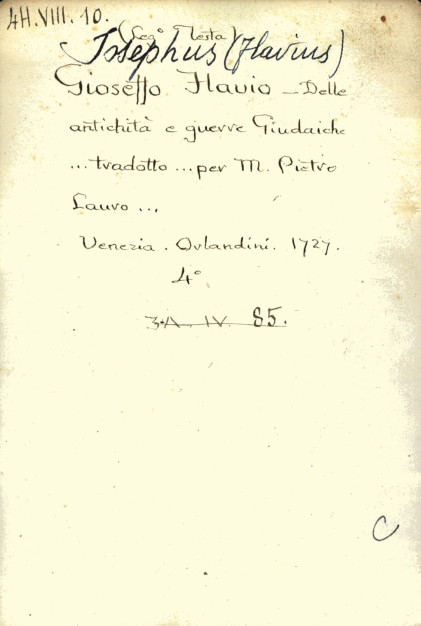 4H.VIII.10.
(Leg.º Testa)
Josephus (Flavius)
Gioseffo Flavio – Delle
antichità e guerre Giudaiche
... tradotto ... per M. Pietro
Lauro ...
Venezia. Orlandini. 1727.
4º
3.A. IV. 85.
C